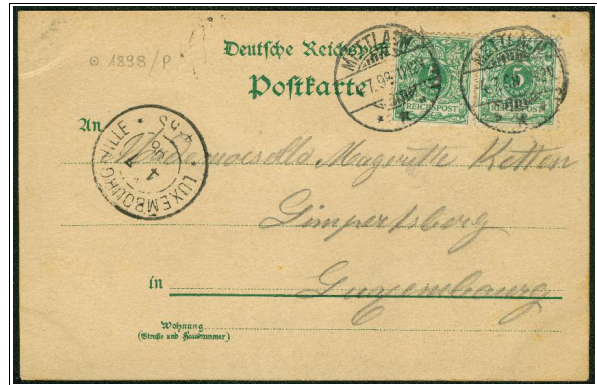 ⊙ 1898/P
Deutsche Reichspost
Postkarte
METTLACH
METTLACH
5
5
REICHSPOST
REICHSPOST
An
LUXEMBOURG-VILLE
Mademoiselle Magritte Ketten
Limpertsberg
in Luxembourg
Wohnung
(Straße und Hausnummer)